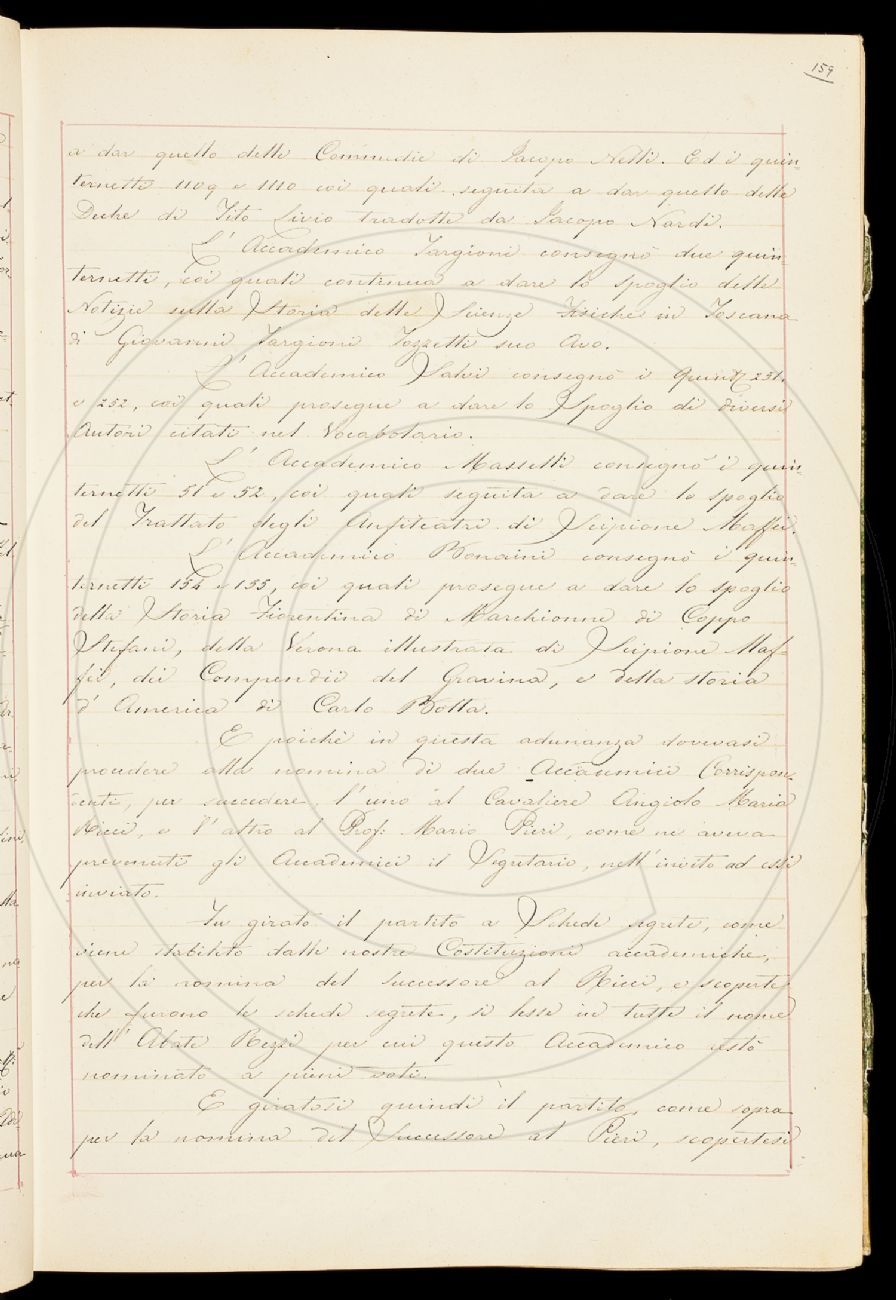 159
a dar quello delle Commedie di Jacopo Nelli. Ed i quin-
ternetti 1109 e 1110 coi quali seguita a dar quello delle
Deche di Tito Livio tradotte da Jacopo Nardi.
L' Accademico Targioni consegnò due quin-
ternetti, coi quali continua a dare lo spoglio delle
Notizie sulla Storia delle Scienze Fisiche in Toscana
di Giovanni Targioni Tozzetti suo Avo.
L' Accademico Salvi consegnò i Quint.i 251.
e 252, coi quali prosegue a dare lo Spoglio di diversi
Autori citati nel Vocabolario.
L' Accademico Masselli consegnò i quin-
ternetti 51 e 52, coi quali seguita a dare lo spoglio
del Trattato degli Anfiteatri di Scipione Maffei.
L' Accademico Bonaini consegnò i quin-
ternetti 154 e 155, coi quali prosegue a dare lo spoglio
della Storia Fiorentina di Marchionne di Coppo
Stefani, della Verona illustrata di Scipione Maf-
fei, dei Compendii del Gravina, e della storia
d' America di Carlo Botta.
E poichè in questa adunanza dovevasi
procedere alla nomina di due Accademici Corrispon-
denti, per succedere, l' uno al Cavaliere Angiolo Maria
Ricci, e l' altro al Prof: Mario Pieri, come ne aveva
prevenuti gli Accademici il Segretario, nell' invito ad essi
inviato.
Fu girato il partito a Schede segrete, come
viene stabilito dalle nostre Costituzioni accademiche,
per la nomina del successore al Ricci, e scoperte
che furono le schede segrete, si lesse in tutte il nome
dell' Abate Rezzi per cui questo Accademico restò
nominato a pieni voti.
E giratosi quindi il partito, come sopra
per la nomina del Successore al Pieri, scopertesi